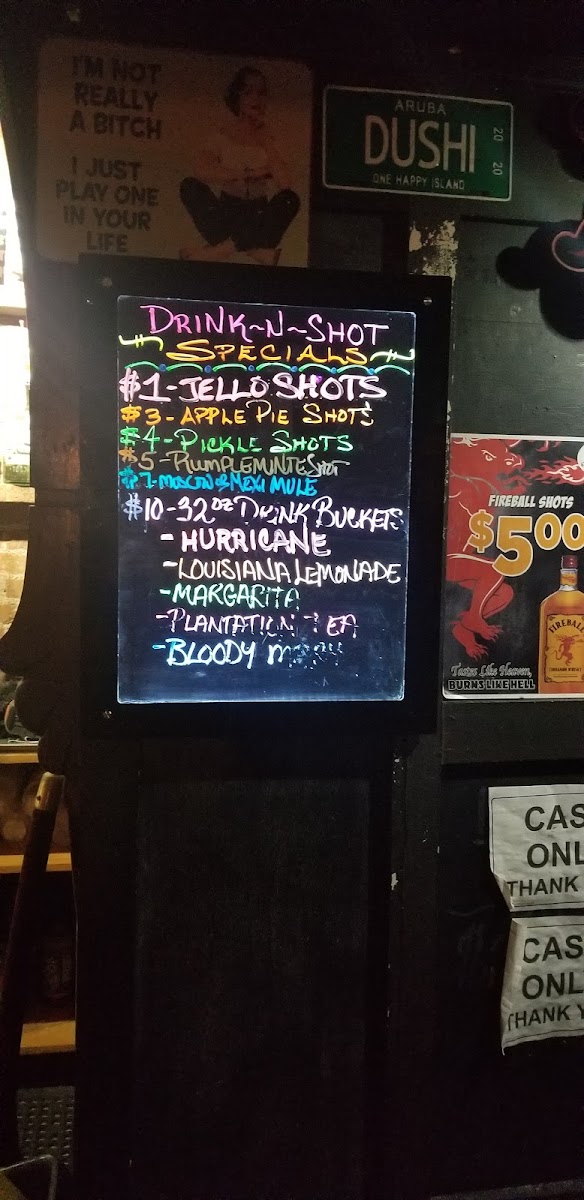 I'M NOT
REALLY
A BITCH
I JUST
PLAY ONE
IN YOUR
LIFE
ARUBA
DUSHI
20
20
ONE HAPPY ISLAND
DRINK~N~SHOT
SPECIALS
$1-JELLO SHOTS
$3-APPLE PIE SHOTS
$4-PICKLE SHOTS
$5-RUMPLEMINTE SHOT
MEXI MULE
$10-32oz DRINK BUCKETS
-HURRICANE
~LOUISIANA LEMONADE
-MARGARITA
-PLANTATION TEA
-BLOODY MARY
FIREBALL SHOTS
$5.00
FIREBALL
CINNAMON WHISKY
Tastes Like Heaven,
BURNS LIKE HELL
CAS
ONL
THANK
CAS
ONL
THANK Y